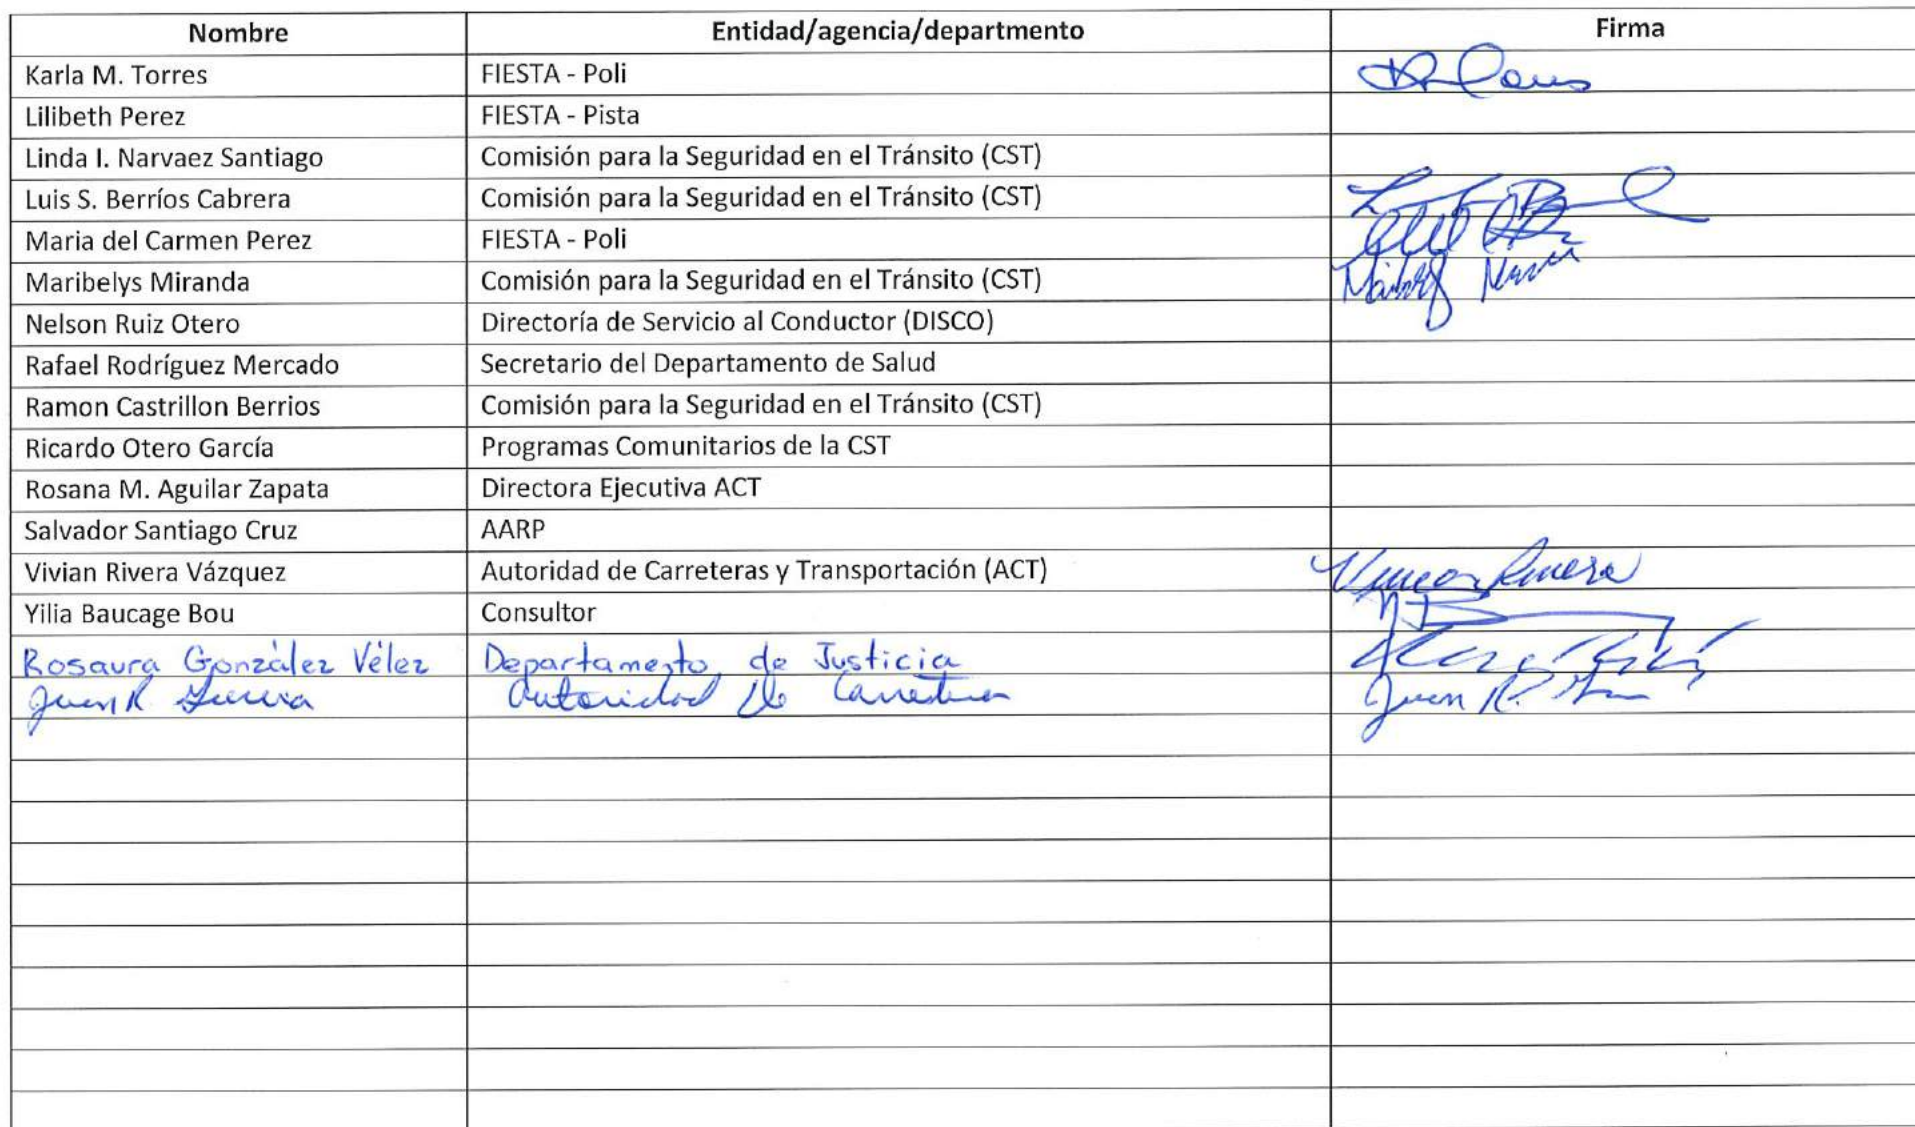 Nombre Entidad/agencia/departmento Firma
Karla M. Torres FIESTA - Poli
Lilibeth Perez FIESTA - Pista
Linda I. Narvaez Santiago Comisión para la Seguridad en el Tránsito (CST)
Luis S. Berríos Cabrera Comisión para la Seguridad en el Tránsito (CST)
Maria del Carmen Perez FIESTA - Poli
Maribelys Miranda Comisión para la Seguridad en el Tránsito (CST)
Nelson Ruiz Otero Directoría de Servicio al Conductor (DISCO)
Rafael Rodríguez Mercado Secretario del Departamento de Salud
Ramon Castrillon Berrios Comisión para la Seguridad en el Tránsito (CST)
Ricardo Otero García Programas Comunitarios de la CST
Rosana M. Aguilar Zapata Directora Ejecutiva ACT
Salvador Santiago Cruz AARP
Vivian Rivera Vázquez Autoridad de Carreteras y Transportación (ACT) Rivera
Yilia Baucage Bou Consultor
Rosaura González Vélez Departamento de Justicia
Juan R Autoridad de Juan R.